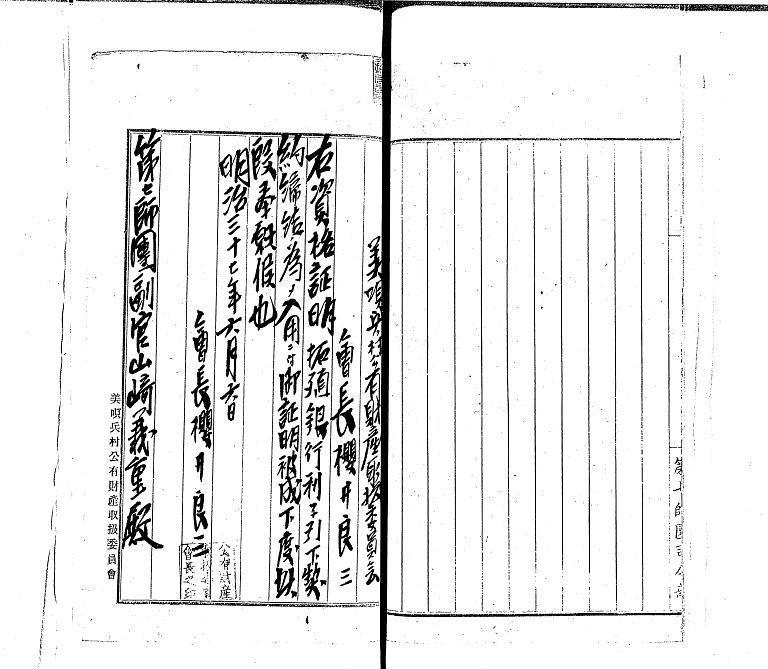 美唄兵村公有財産取扱委員会
會長櫻井良三
右資格証明拓殖銀行利子引下契
約締結為メ入用ニ付御証明被成下度此
段奉願候也
明治三十七年六月六日
會長櫻井良三
公有財産
會長之印
第七師團副官山崎義重殿
美唄兵村公有財産取扱委員會